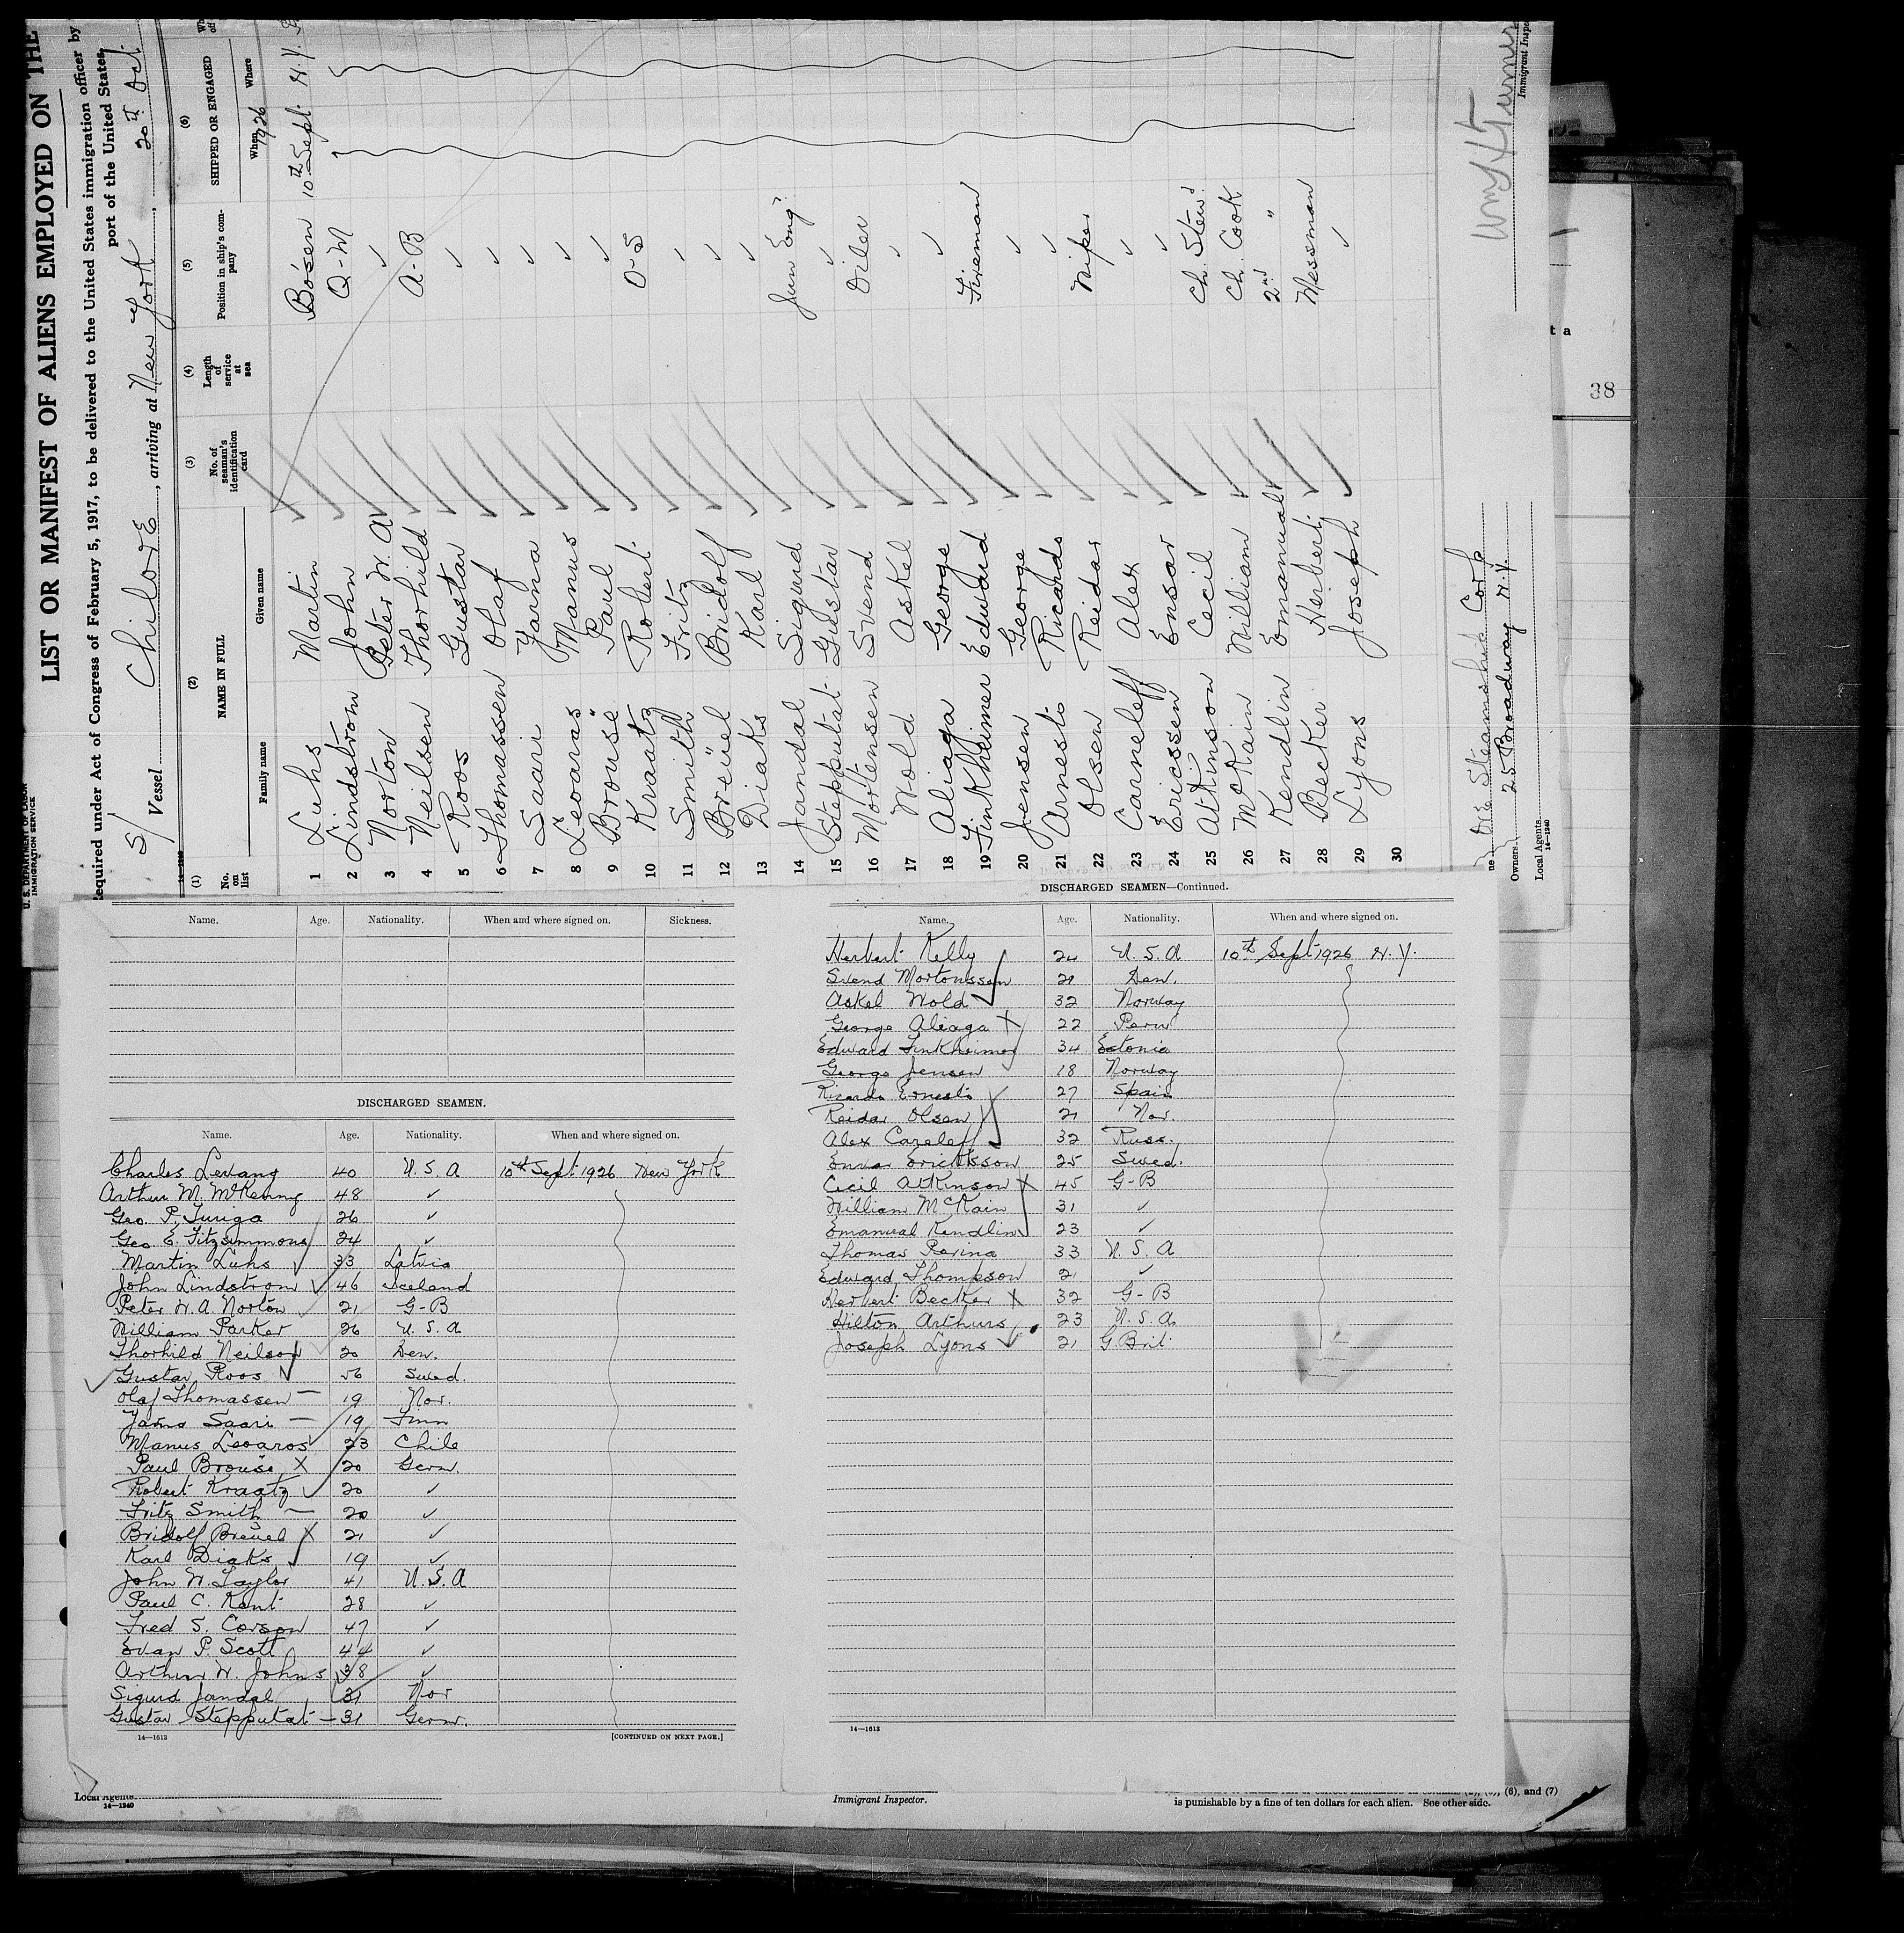 U. S. DEPARTMENT OF LABOR
IMMIGRATION SERVICE
LIST OR MANIFEST OF ALIENS EMPLOYED ON THE
equired under Act of Congress of February 5, 1917, to be delivered to the United States immigration officer by
port of the United States
S/ Vessel Chilore, arriving at New York, 20th Oct.
14-1240
(1) (2) (3) (4) (5) (6)
No. on list NAME IN FULL No. of seaman's identification card Length of service at sea Position in ship's company SHIPPED OR ENGAGED
Family name Given name When Where
1926
1 Luhs Martin Bosen 10th Sept. N.Y.
2 Lindstrom John Q-M
3 Norton Peter W. A ✓
4 Neilsen Thorhild A-B
5 Roos Gustav ✓
6 Thomassen Olaf ✓
7 Saari Yarna ✓
8 Leoaras Manus ✓
9 Brousë Paul ✓
10 Kraatz Robert O-S
11 Smith Fritz ✓
12 Breüel Bridolf ✓
13 Diaks Karl ✓
14 Jandal Sigurd Jun Eng?
15 Stepputat Gustav ✓
16 Mortensen Svend Oiler
17 Wold Askel ✓
18 Aliaga George ✓
19 Finkheimer Edward Fireman
20 Jensen George ✓
21 Arnesto Ricardo ✓
22 Olsen Reidar Wiper
23 Carneleff Alex ✓
24 Ericssen Ensar ✓
25 Atkinson Cecil Ch. Stew'd
26 McKain William Ch. Cook
27 Kendlin Emanual 2nd "
28 Becker Herbert Messman
29 Lyons Joseph ✓
30
Ore Steamship Corp
Owners 25 Broadway N.Y.
Local Agents
14-1240
Immigrant Inspe
t a
38
Name. Age. Nationality. When and where signed on. Sickness.
DISCHARGED SEAMEN.
Name. Age. Nationality. When and where signed on.
Charles Levang 40 U.S.A 10th Sept 1926 New York
Arthur M. McKenny 48 ✓
Geo. P. Turiga 26 ✓
Geo E. Fitzsimmons 24 ✓
Martin Luhs 33 Latvia
John Lindstrom ✓ 46 Iceland
Peter W. A. Norton 21 G-B
William Parker 26 U.S.A
Thorhild Neilson 20 Den.
Gustav Roos 56 Swed.
Olaf Thomassen — 19 Nor.
Yarno Saari — 19 Finn
Manus Leoaros 23 Chile
Paul Brousë X 20 Germ.
Robert Kraatz ✓ 20 ✓
Fritz Smith — 20 ✓
Bridolf Breuel X 21 ✓
Karl Diaks 19 ✓
John W. Taylor 41 U.S.A
Paul C. Kent 28 ✓
Fred S. Corson 47 ✓
Evan P. Scott 44 ✓
Arthur W. Johns 38 ✓
Sigurd Jandal 31 Nor
Gustav Stepputat — 31 Germ.
14—1613 [CONTINUED ON NEXT PAGE.]
DISCHARGED SEAMEN—Continued.
Name. Age. Nationality. When and where signed on.
Herbert Kelly 24 U.S.A 10th Sept 1926 N.Y.
Svend Mortonssen 21 Den.
Askel Wold 32 Norway
George Aliaga X 22 Peru
Edward Finkheimer 34 Estonia
George Jensen 18 Norway
Ricardo Ernesto 27 Spain
Reidar Olsen 21 Nor.
Alex Careleff 32 Russ.
Ensar Ericksson 25 Swed.
Cecil Atkinson X 45 G-B
William McKain 31 ✓
Emanual Kendlin 23 ✓
Thomas Perina 33 U.S.A
Edward Thompson 21 ✓
Herbert Becker X 32 G-B
Hilton Arthurs 23 U.S.A.
Joseph Lyons ✓ 21 G.Brit
14—1613
Local Agents
14—1240
Immigrant Inspector.
(6), and (7)
is punishable by a fine of ten dollars for each alien. See other side.